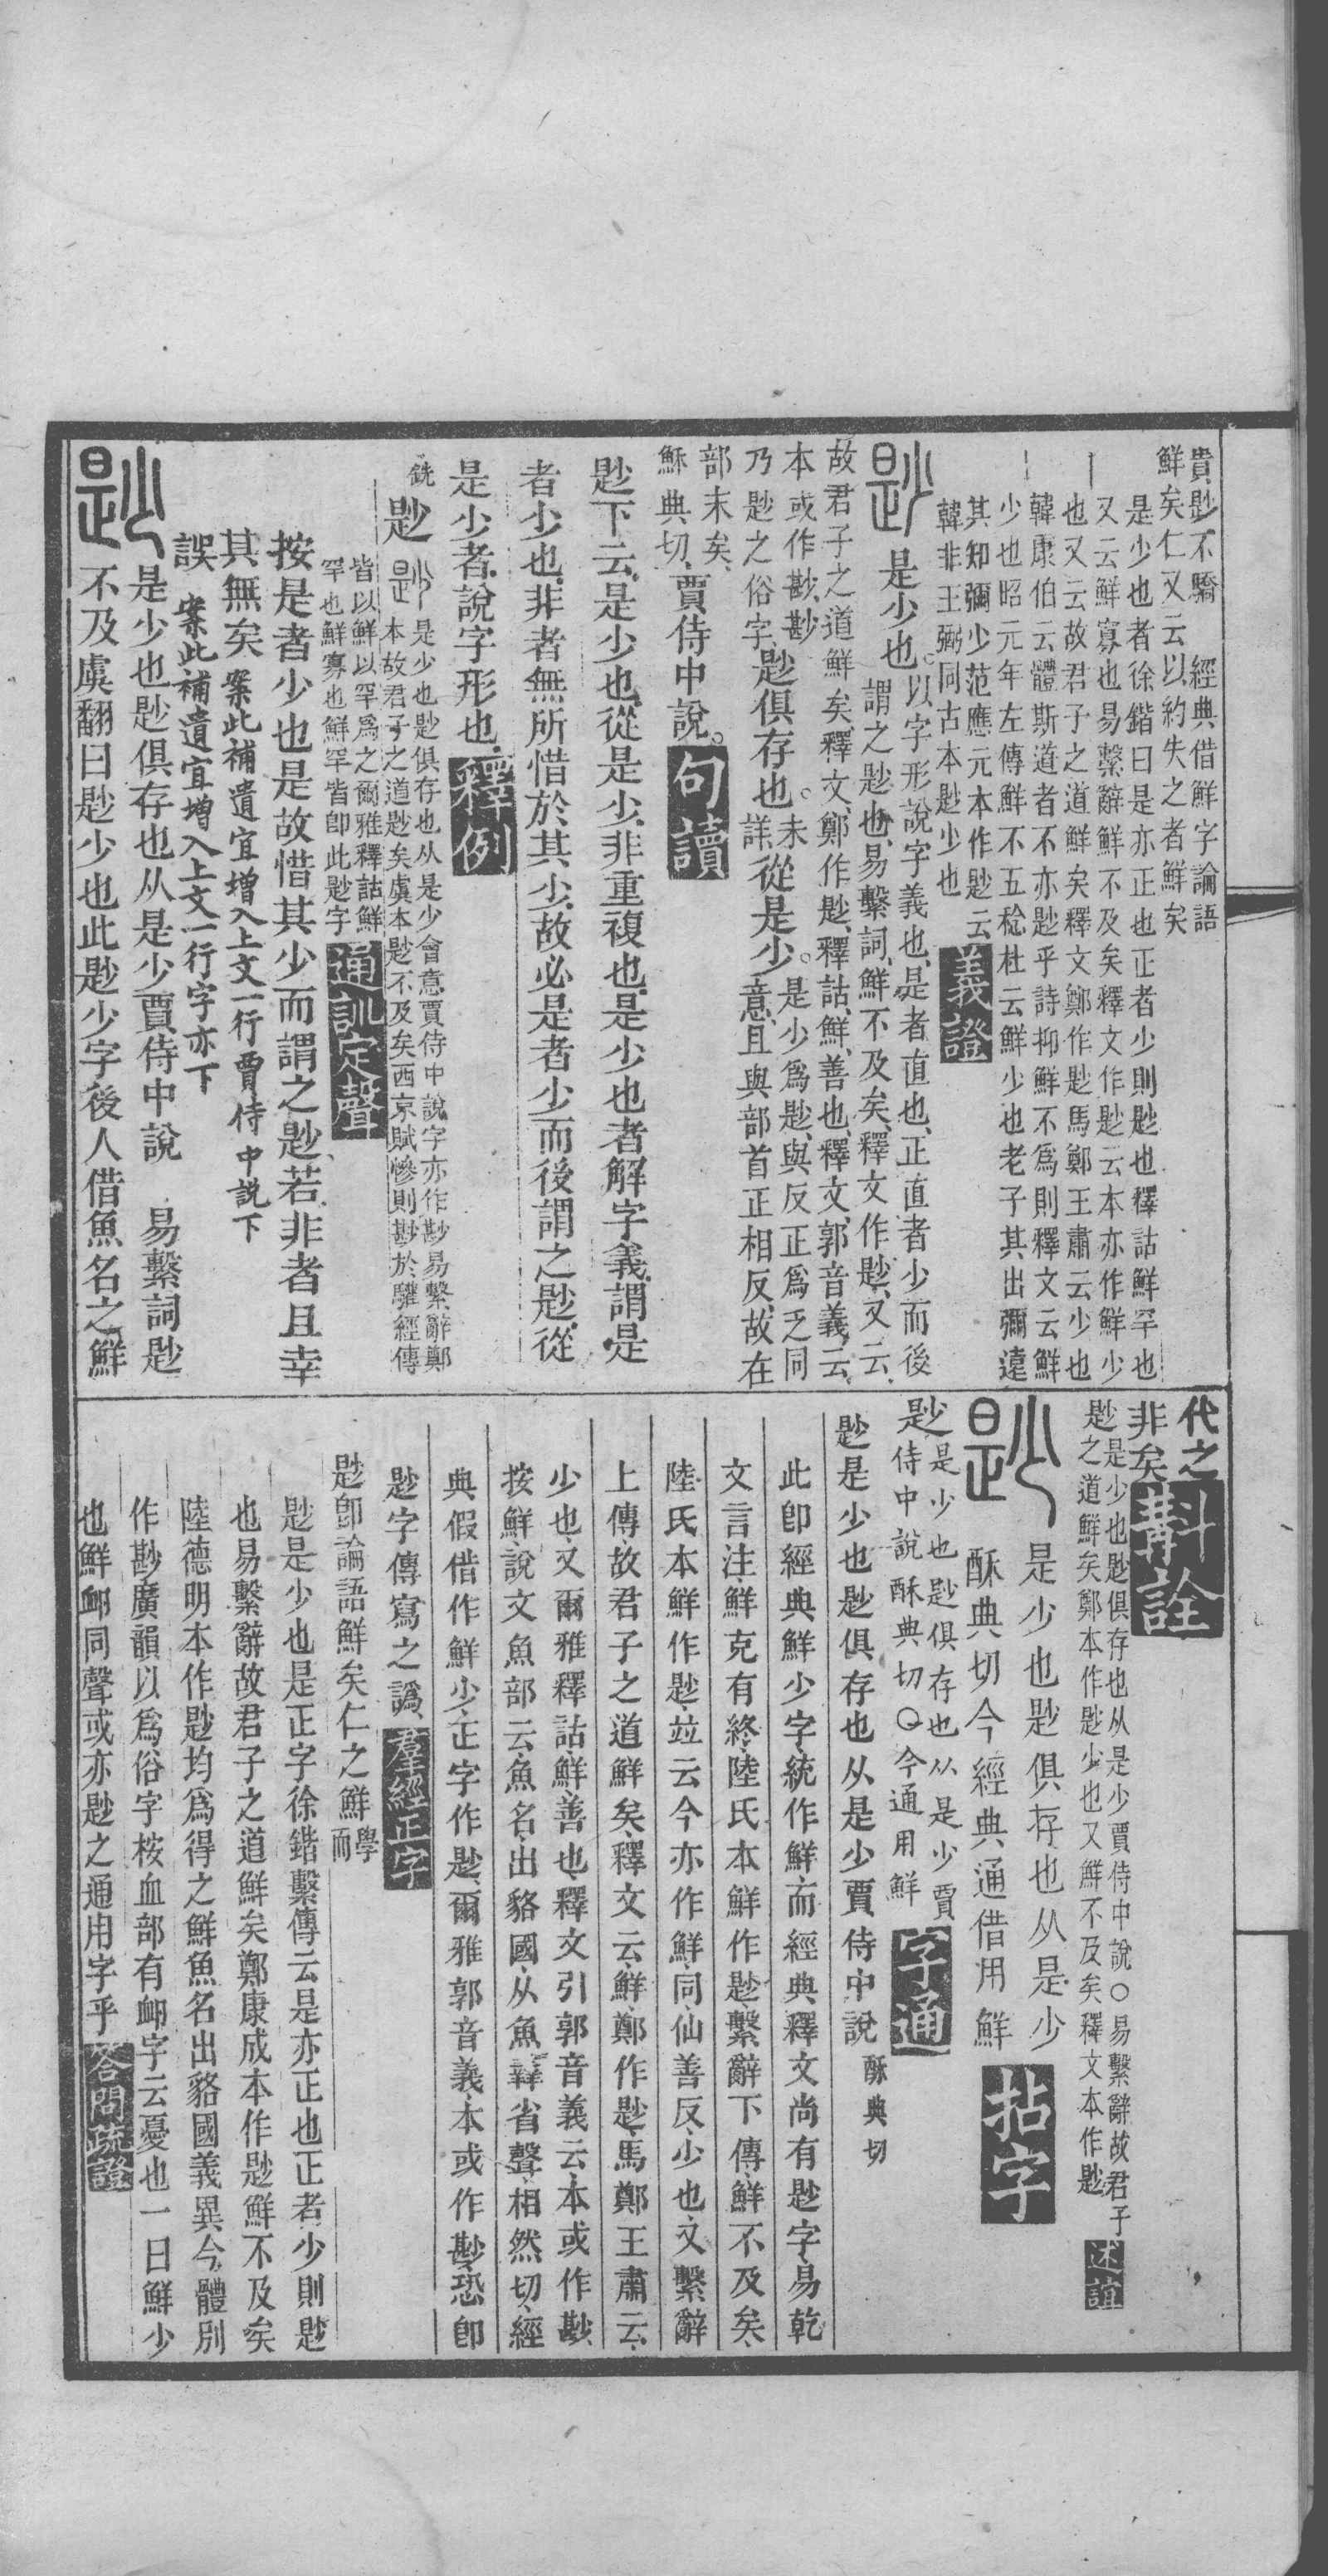 貴尟不驕　經典借鮮字論語
鮮矣仁又云以約失之者鮮矣
是少也者徐鍇曰是亦正也正者少則尟也釋詁鮮罕也
又云鮮寡也易繫辭鮮不及矣釋文作尟云本亦作鮮少
也又云故君子之道鮮矣釋文鄭作尟馬鄭王肅云少也
韓康伯云體斯道者不亦尟乎詩抑鮮不爲則釋文云鮮
少也昭元年左傳鮮不五稔杜云鮮少也老子其出彌遠
其知彌少范應元本作尟云
韓非王弼同古本尟少也
義證
尟
是少也。
以字形說字義也、是者直也、正直者少而後
謂之尟也、易繫詞、鮮不及矣、釋文作尟、又云、
故君子之道鮮矣、釋文、鄭作尟、釋詁、鮮、善也、釋文、郭音義云、
本或作尠、尠
乃尟之俗字、
尟俱存也。
未
詳、
從是少。
是少爲尟、與反正爲乏同
意、且與部首正相反、故在
部末矣、
穌典切、
賈侍中說。
句讀
尟下云、是少也、從是少、非重複也、是少也者解字義、謂是
者少也、非者無所惜於其少、故必是者少而後謂之尟、從
是少者、說字形也、
釋例
銑
尟
尟
是少也尟俱存也从是少會意賈侍中說字亦作尠易繫辭鄭
本故君子之道尟矣虞本尟不及矣西京賦慘則尠於驩經傳
皆以鮮以罕爲之爾雅釋詁鮮
罕也鮮寡也鮮罕皆卽此尟字
通訓定聲
按是者少也是故惜其少而謂之尟若非者且幸
其無矣
案此補遺宜增入上文一行賈侍中說下
誤
案此補遺宜增入上文一行字亦下
尟
是少也尟俱存也从是少賈侍中說　易繫詞尟
不及虞翻曰尟少也此尟少字後人借魚名之鮮
代之
非矣
斠詮
是少也尟俱存也从是少賈侍中說〇易繫辭故君子
尟之道鮮矣鄭本作尟少也又鮮不及矣釋文本作尟
述誼
尟
是少也尟俱存也从是少
酥典切今經典通借用鮮
拈字
尟
是少也尟俱存也从是少賈
侍中說酥典切〇今通用鮮
字通
尟是少也尟俱存也从是少賈侍中說
酥典切
此卽經典鮮少字、統作鮮、而經典釋文尚有尟字、易乾
文言注、鮮克有終、陸氏本鮮作尟、繫辭下傳、鮮不及矣、
陸氏本鮮作尟竝云今亦作鮮、同、仙善反、少也、又繫辭
上傳、故君子之道鮮矣、釋文云、鮮、鄭作尟、馬鄭王肅云、
少也、又爾雅釋詁、鮮、善也、釋文引郭音義云、本或作尠、
按鮮、說文魚部云、魚名、出貉國、从魚、羴省聲、相然切、經
典假借作鮮少、正字作尟、爾雅郭音義、本或作尠、恐卽
尟字傳寫之譌、
羣經正字
尟卽論語鮮矣仁之鮮
學
而
尟是少也是正字徐鍇繫傳云是亦正也正者少則尟
也易繫辭故君子之道鮮矣鄭康成本作尟鮮不及矣
陸德明本作尟均爲得之鮮魚名出貉國義異今體別
作尠廣韻以爲俗字桉血部有衈字云憂也一曰鮮少
也鮮衈同聲或亦尟之通用字乎
答問疏證